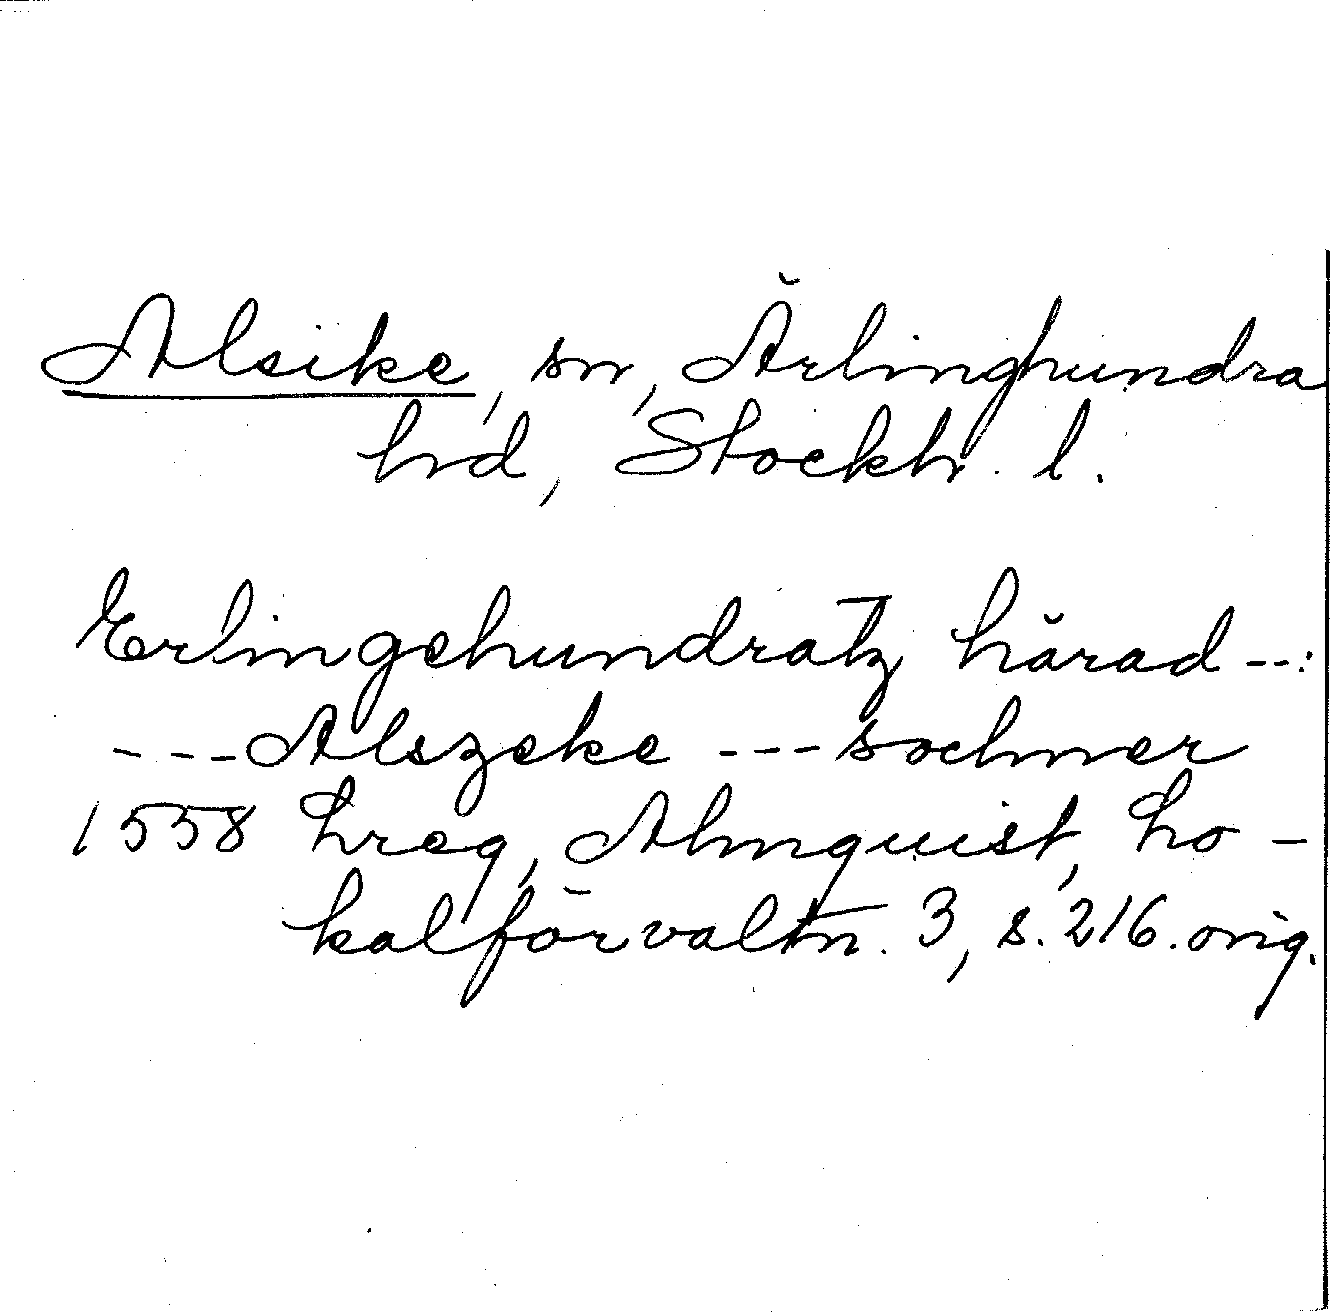 Alsike, sn, Ärlinghundra
hrd, Stockh. l.
Erlingehundratz härad --:
--- Alszeke --- sochner
1558 Lreg, Almquist, Lo-
kalförvaltn. 3, s. 216. orig.